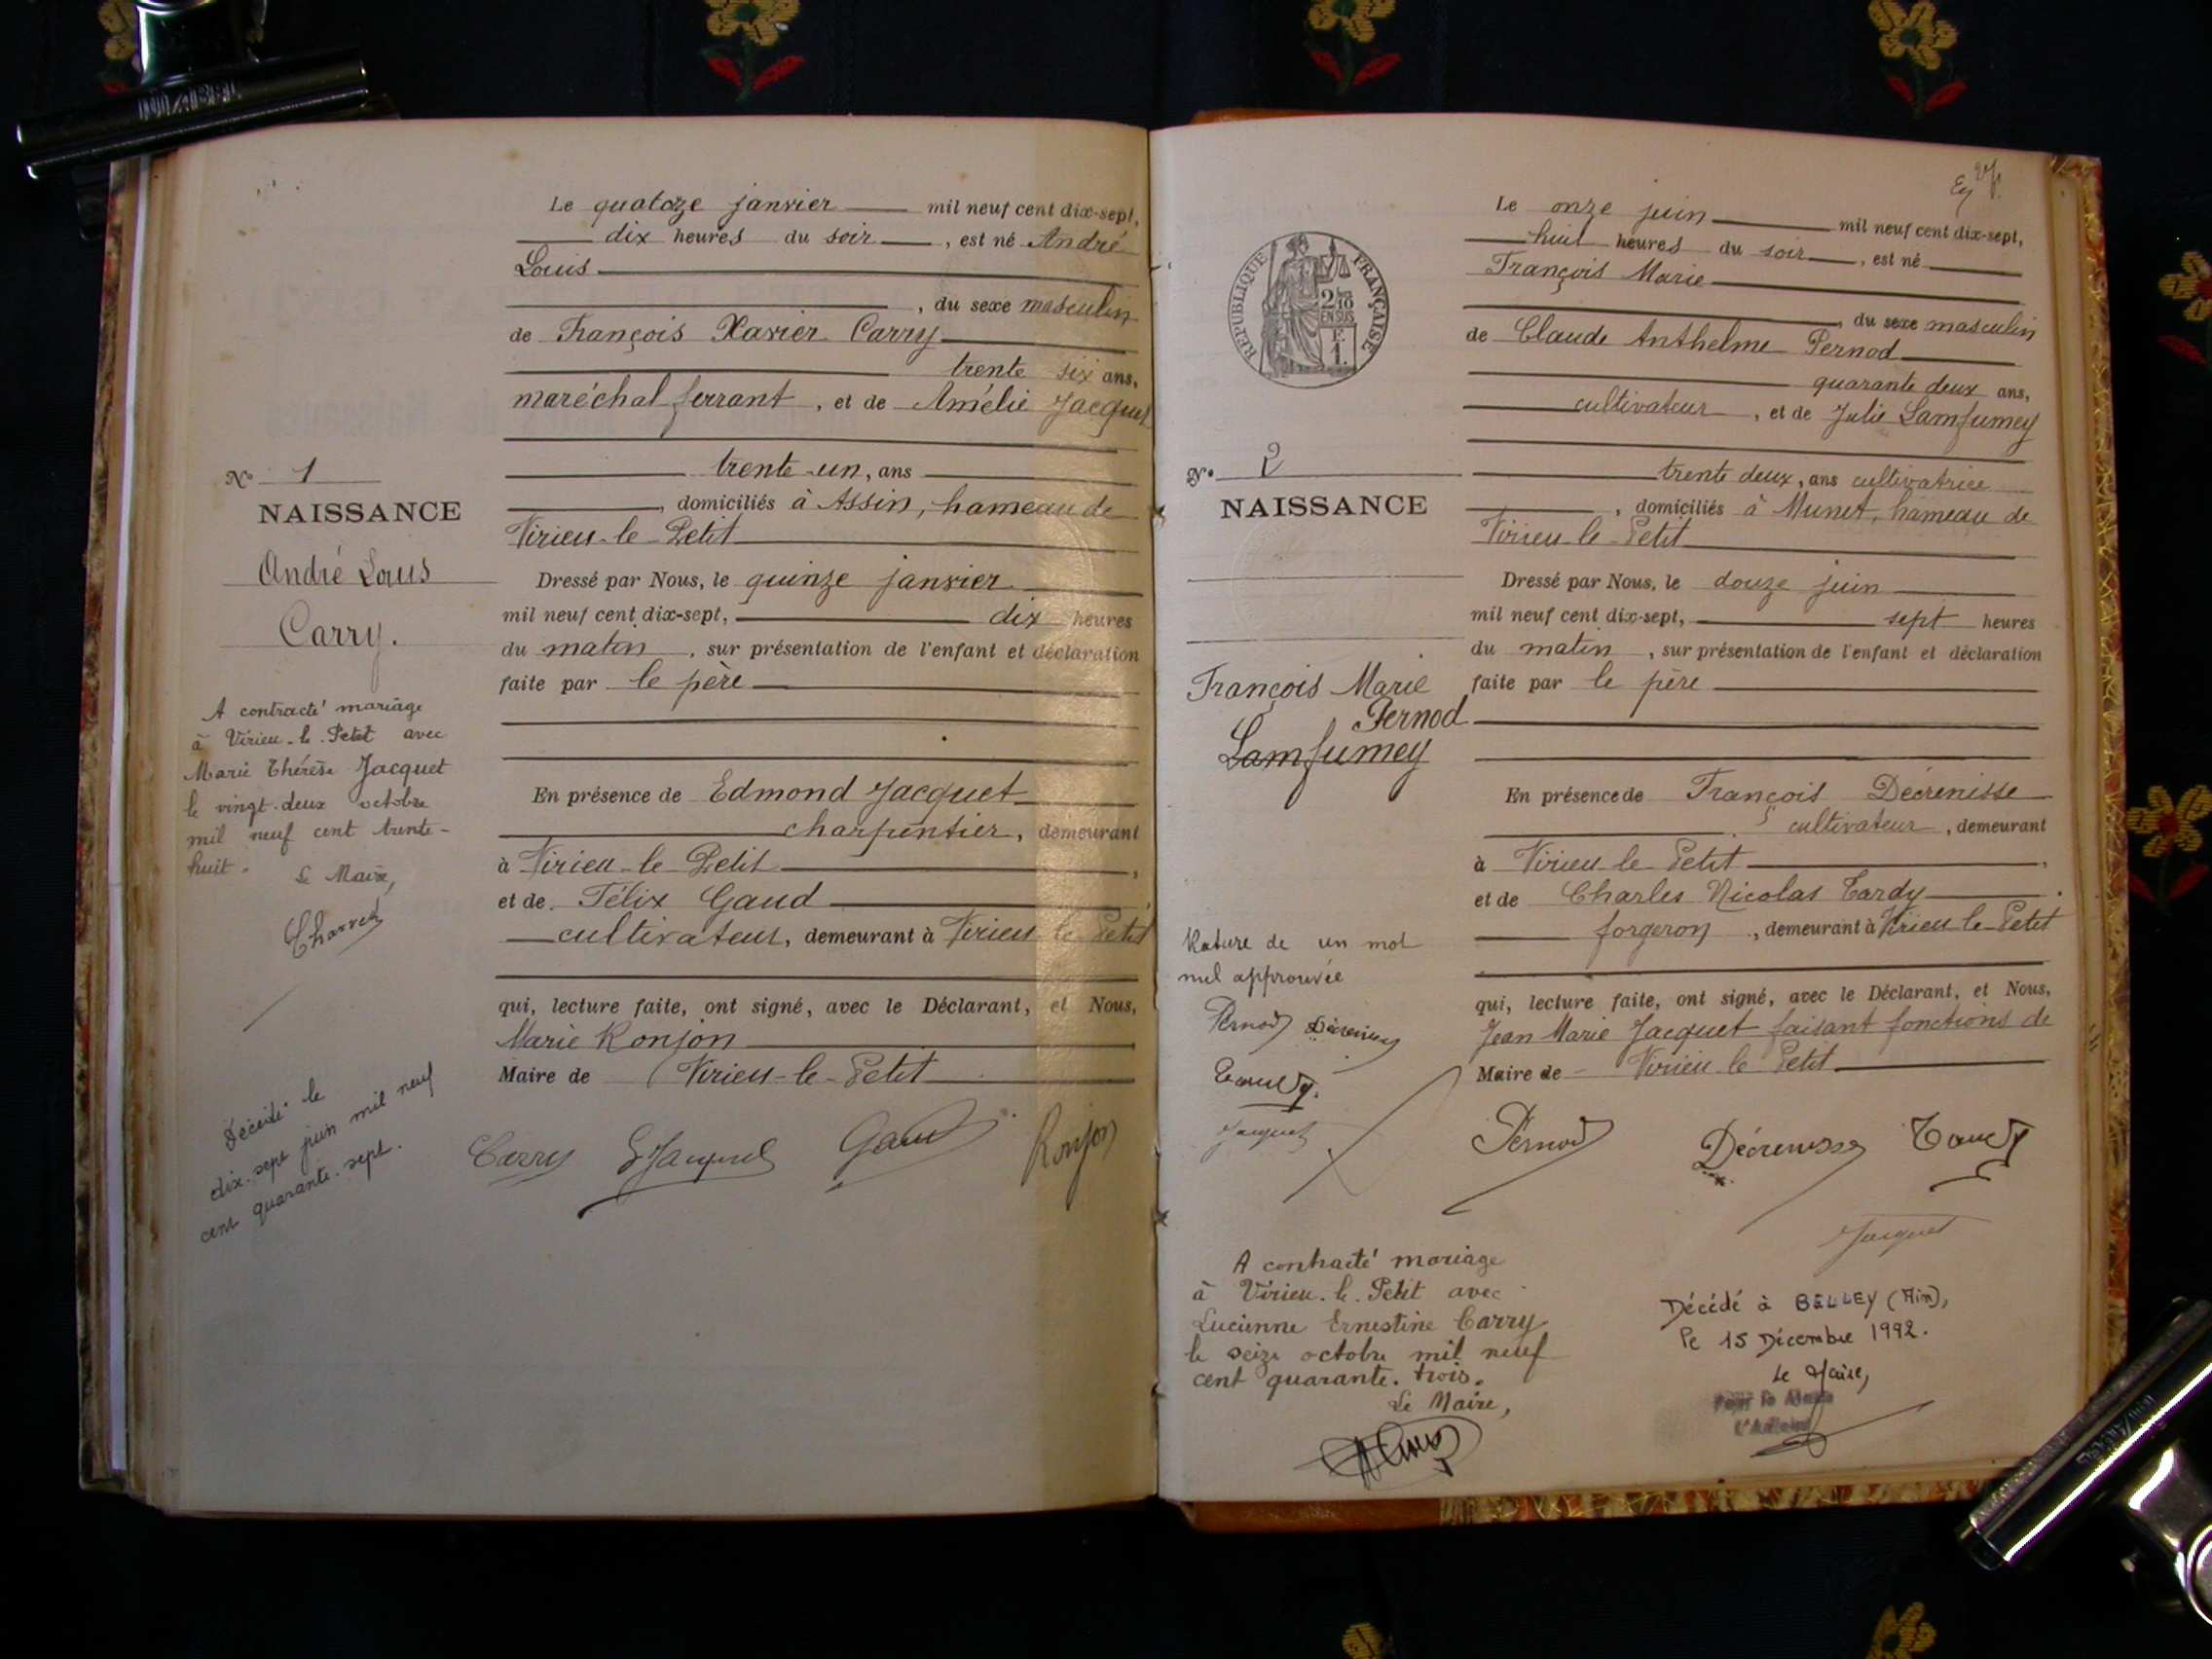 Le quatoze janvier mil neuf cent dix-sept,
dix heures du soir, est né André
Louis
, du sexe masculin
de François Xavier Carry
trente six ans,
maréchal ferrant, et de Amélie Jacquet
trente-un, ans
, domiciliés à Assin, hameau de
Virieu-le-Petit
Dressé par Nous, le quinze janvier
mil neuf cent dix-sept, dix heures
du matin, sur présentation de l'enfant et déclaration
faite par le père
En présence de Edmond Jacquet
charpentier, demeurant
à Virieu-le-Petit,
et de Félix Gaud
cultivateur, demeurant à Virieu le Petit
qui, lecture faite, ont signé, avec le Déclarant, et Nous,
Marie Ronjon
Maire de Virieu-le-Petit
Carry EJacquet Gaud Ronjon
No 1
NAISSANCE
André Louis
Carry.
A contracté mariage
à Virieu-le-Petit avec
Marie Thérèse Jacquet
le vingt-deux octobre
mil neuf cent trente-
huit.
Le Maire,
Charvet
Décédé le
dix-sept juin mil neuf
cent quarante-sept.
Le onze juin mil neuf cent dix-sept,
huit heures du soir, est né
François Marie
, du sexe masculin
de Claude Anthelme Pernod
quarante deux ans,
cultivateur, et de Julie Lamfumey
trente deux, ans cultivatrice
, domiciliés à Munet, hameau de
Virieu-le-Petit
Dressé par Nous, le douze juin
mil neuf cent dix-sept, sept heures
du matin, sur présentation de l'enfant et déclaration
faite par le père
En présence de François Décrenisse
cultivateur, demeurant
à Virieu-le-Petit,
et de Charles Nicolas Tardy
forgeron, demeurant à Virieu-le-Petit
qui, lecture faite, ont signé, avec le Déclarant, et Nous,
Jean Marie Jacquet faisant fonctions de
Maire de Virieu le Petit
Pernod Décrenisse Tardy
Jacquet
RÉPUBLIQUE FRANÇAISE
2/10
EN SUS
F.
1.
No 2
NAISSANCE
François Marie
Pernod
Lamfumey
Rature de un mot
nul approuvée
Pernod Décrenisse
Tardy.
Jacquet
A contracté mariage
à Virieu-le-Petit avec
Lucienne Ernestine Carry
le seize octobre mil neuf
cent quarante-trois.
Le Maire,
Décédé à BELLEY (Ain),
le 15 Décembre 1992.
Le Maire,
Pour le Maire
L'Adjoint